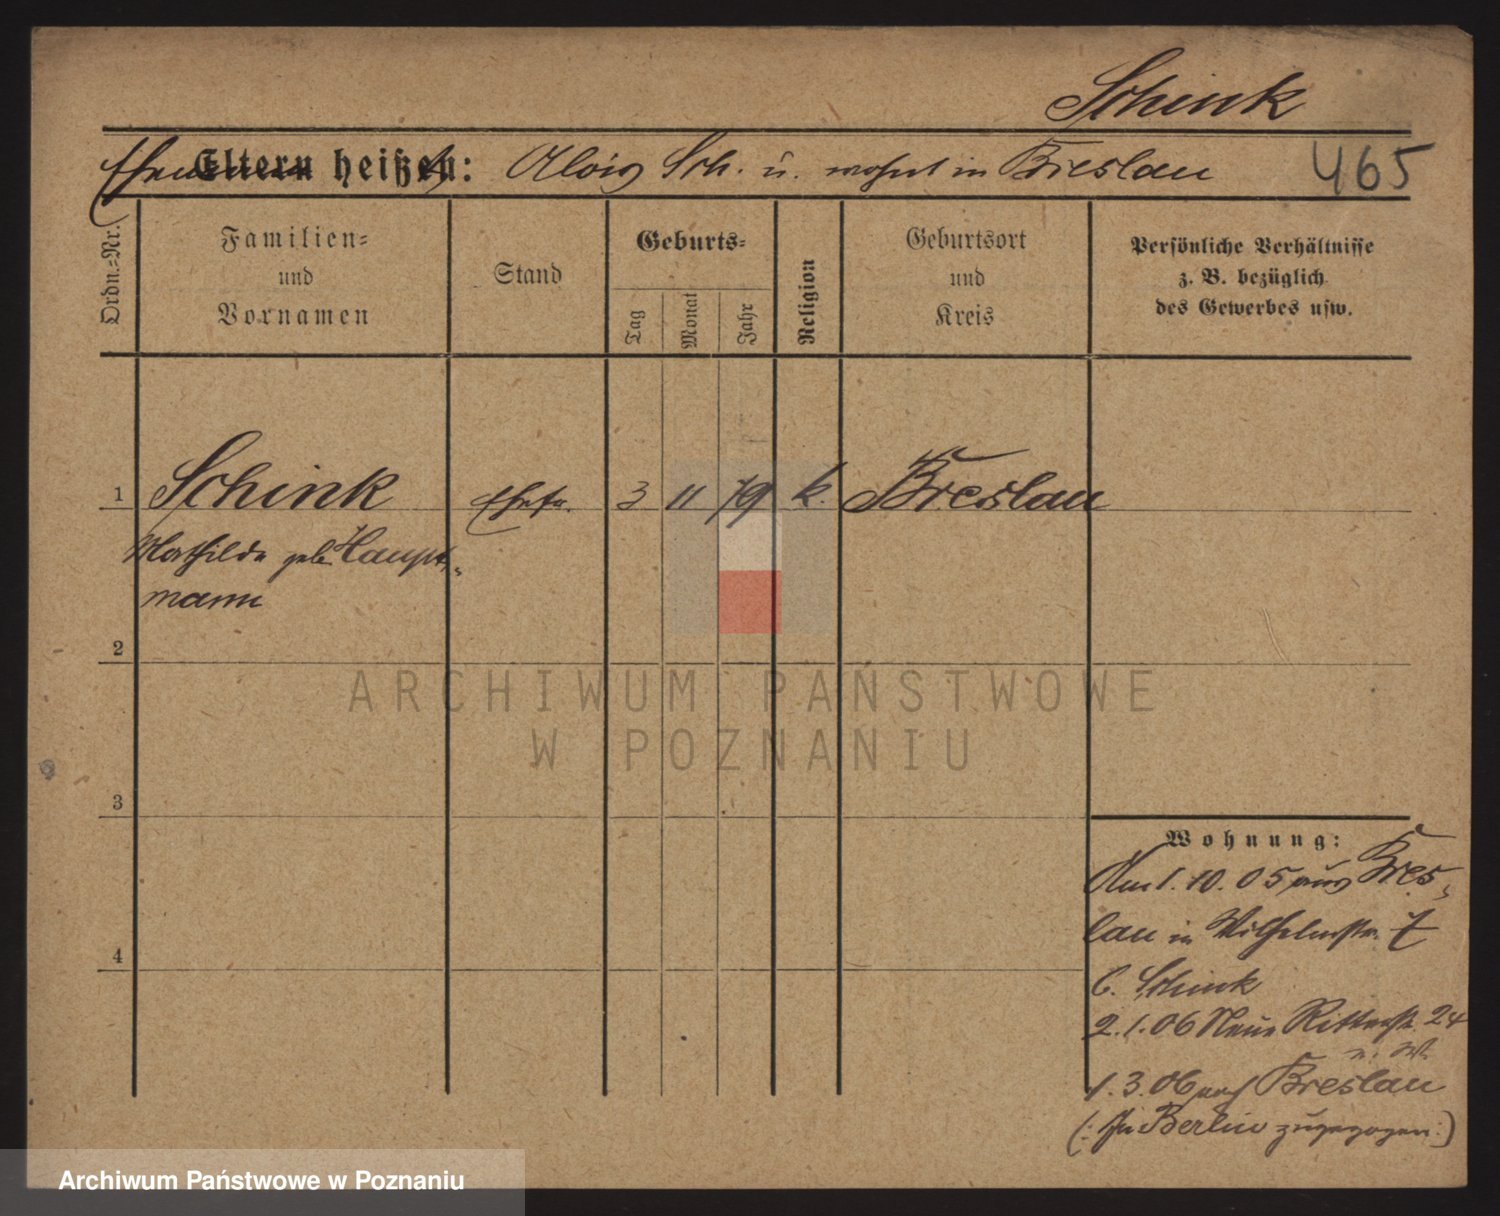 Schink
Ehemann heißt: Alois Sch. u. wohnt in Breslau
465
Ordn.-Nr.
Familien-
und
Vornamen
Stand
Geburts-
Tag
Monat
Jahr
Religion
Geburtsort
und
Kreis
Persönliche Verhältnisse
z. B. bezüglich
des Gewerbes usw.
1
Schink
Ehefr.
3
11
79
k.
Breslau
Mathilde geb. Haupt-
mann
2
ARCHIWUM PAŃSTWOWE
W POZNANIU
3
4
Wohnung:
Am 1. 10. 05 aus Bres-
lau in Wilhelmstr. 7
b. Schink
2. 1. 06 Neue Ritterstr. 24
1. 3. 06 nach Breslau
(: In Berlin zugezogen :)
Archiwum Państwowe w Poznaniu